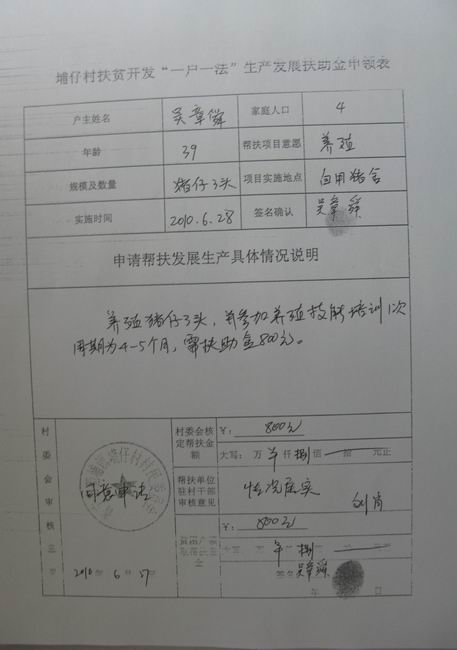 埔仔村扶贫开发“一户一法”生产发展扶助金申领表
户主姓名 吴章舜 家庭人口 4
年龄 39 帮扶项目意愿 养殖
规模及数量 猪仔3头 项目实施地点 自用猪舍
实施时间 2010.6.28 签名确认 吴章舜
申请帮扶发展生产具体情况说明
养殖猪仔3头，并参加养殖技能培训1次
周期为4-5个月，需扶助金800元。
村委会审核
同意申请
2010 6 17
村委会核定帮扶金额
￥： 800元
大写： 万 仟 捌 佰 拾 元正
帮扶单位驻村干部审核意见
情况属实
￥： 800元
大写： 万 捌
签名 吴章舜
年